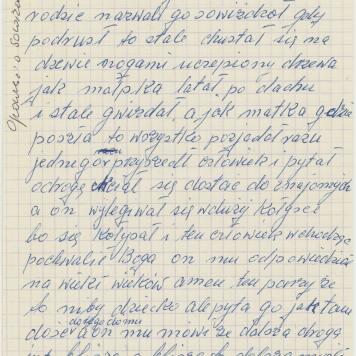 rodzie nazwali go sowizdżoł gdy
podrusł to stale chustał się na
dzewie nogami uczepiony drzewa
jak małpska latał po dachu
i stale gwizdał, a jak matka gdzie
poszła to wszystko pozjadał razu
jednego przyszedł człowiek i pytał
odrogę chciał się dostać do znajomych
a on wylegiwał się w duży kołysce
bo się kołysał i ten człowiek wchodząc
pochwalił Boga on mu odpowiedział
na wieki wieków amen ten patrzy że
to niby dziecko ale pyta go jak tam
dojść a on mu mówi że dalszą drogą
do tego domu
Opowieść o Sowizd